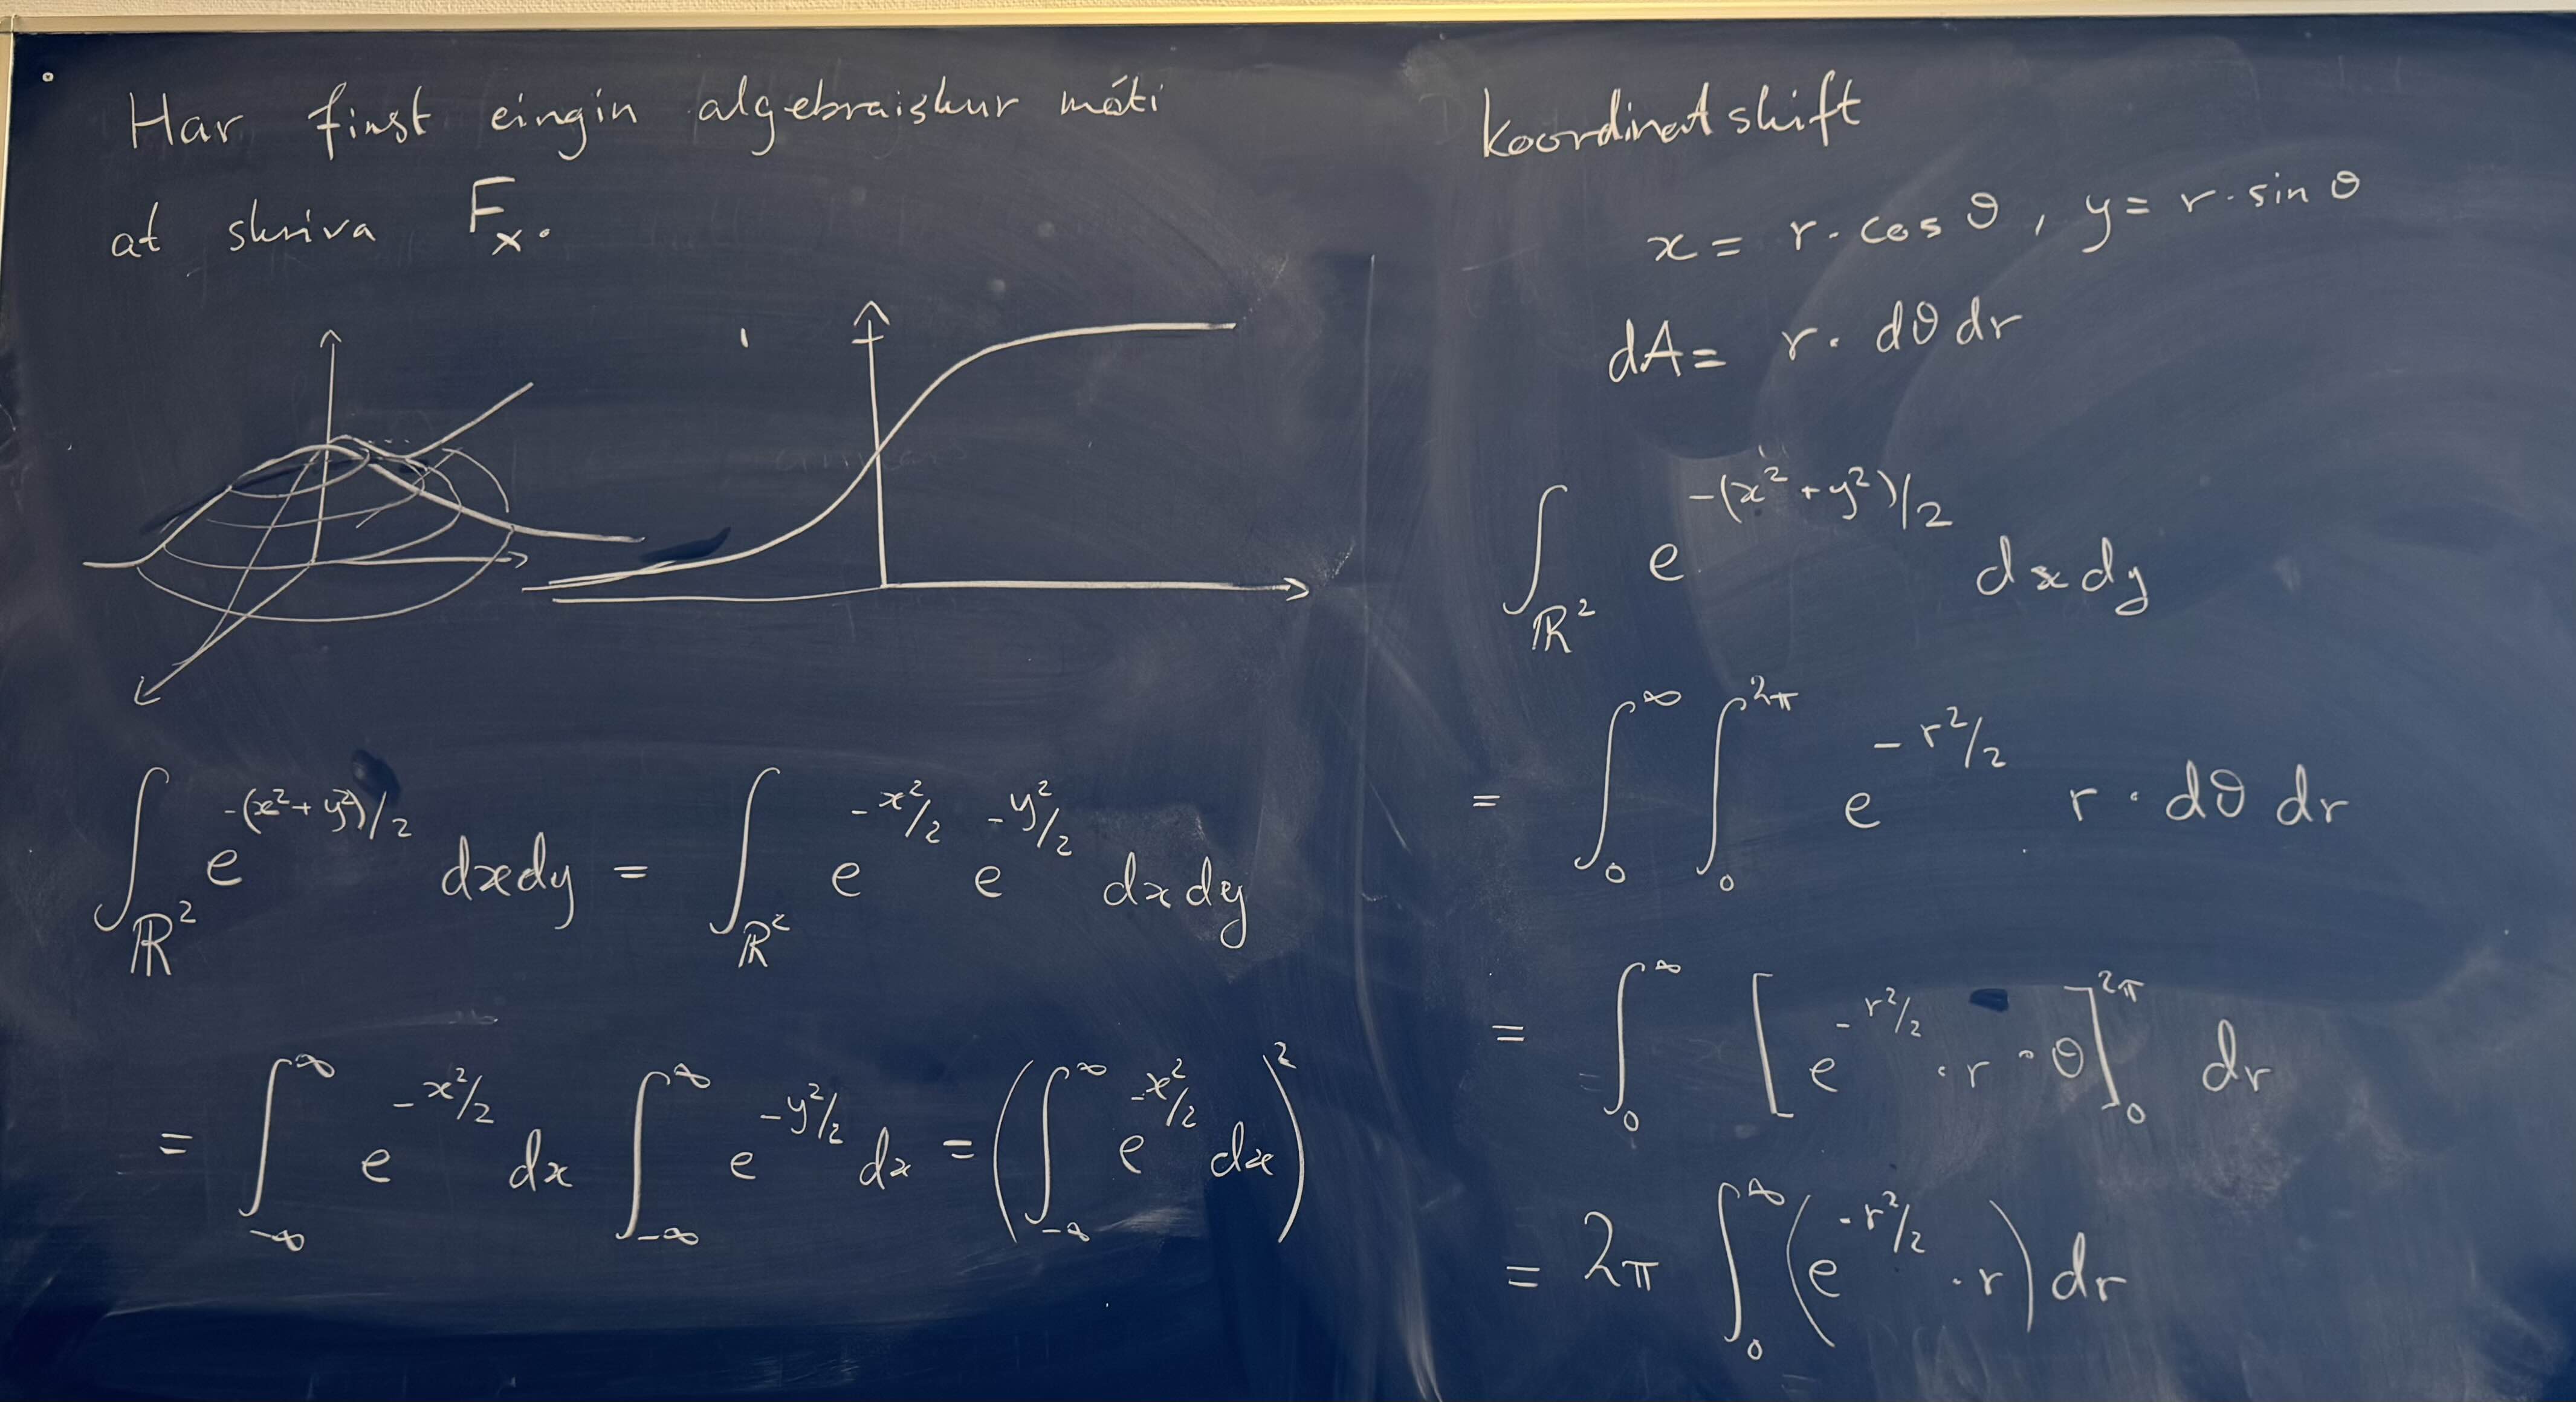 Har finst eingin algebraiskur máti
at skriva F_x.
∫_{ℝ²} e^{-(x²+y²)/2} dxdy = ∫_{ℝ²} e^{-x²/2} e^{-y²/2} dxdy
= ∫_{-∞}^{∞} e^{-x²/2} dx ∫_{-∞}^{∞} e^{-y²/2} dx = (∫_{-∞}^{∞} e^{-x²/2} dx)²
Koordinatskift
x = r·cos θ, y = r·sin θ
dA = r·dθdr
∫_{ℝ²} e^{-(x²+y²)/2} dxdy
= ∫_0^∞ ∫_0^{2π} e^{-r²/2} r·dθ dr
= ∫_0^∞ [e^{-r²/2}·r·θ]_0^{2π} dr
= 2π ∫_0^∞ (e^{-r²/2}·r) dr